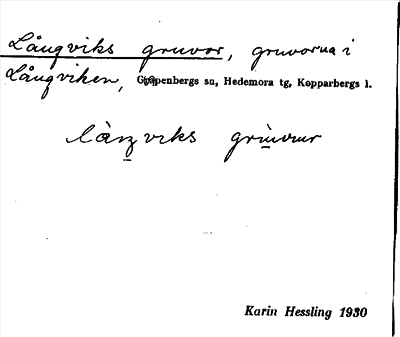 Långviks gruvor, gruvorna i
Långviken, Garpenbergs sn, Hedemora tg, Kopparbergs l.
làŋviks grùvωr
Karin Hessling 1930